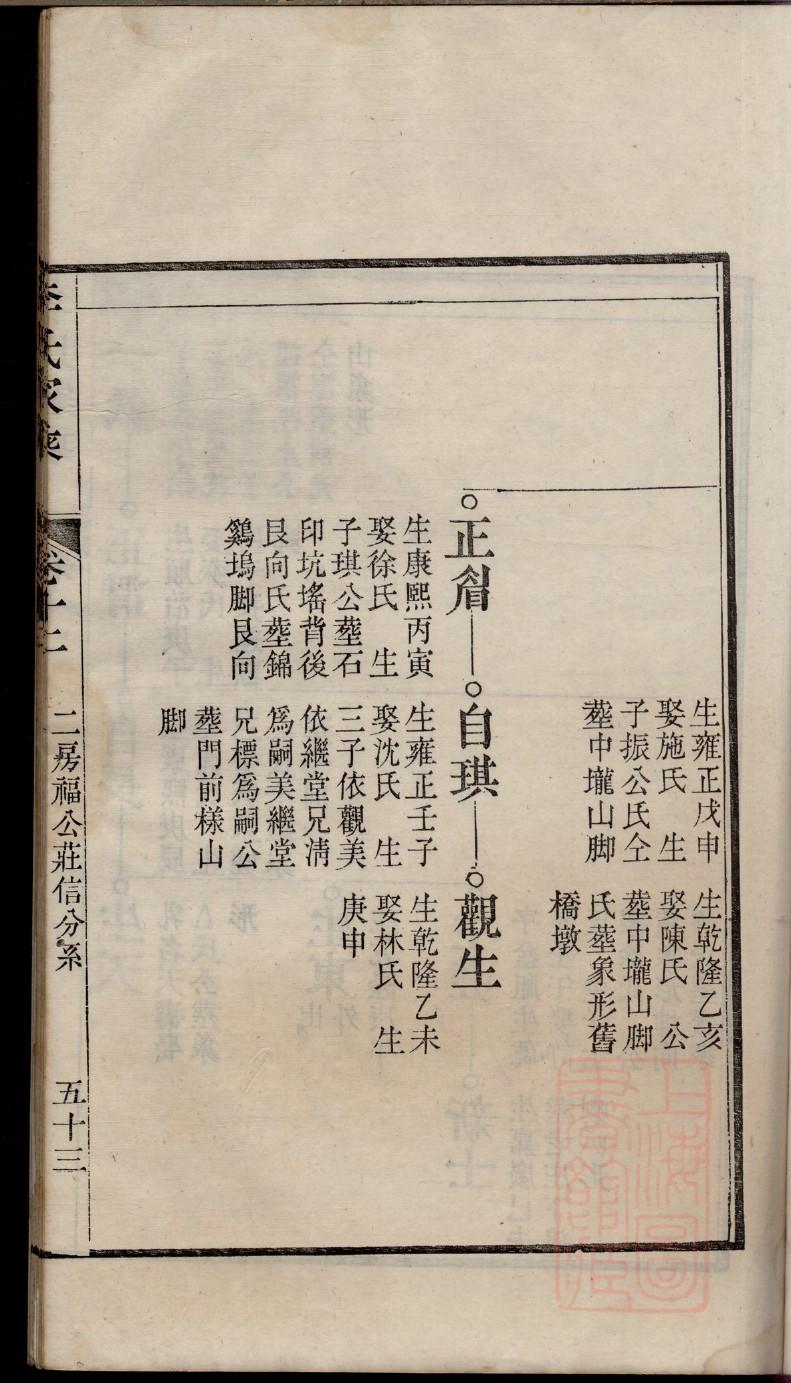 生雍正戊申
娶施氏　生
子振公氏仝
塟中壠山脚
生乾隆乙亥
娶陳氏　公
塟中壠山脚
氏塟象形舊
橋墩
正眉
生康熙丙寅
娶徐氏　生
子琪公塟石
印坑瑤背後
艮向氏塟錦
鷄塢脚艮向
自琪
生雍正壬子
娶沈氏　生
三子依觀美
依繼堂兄淸
爲嗣美繼堂
兄標爲嗣公
塟門前樣山
脚
觀生
生乾隆乙未
娶林氏　生
庚申
李氏家乘
卷十二
二房福公莊信分系
五十三
上海圖
書館藏